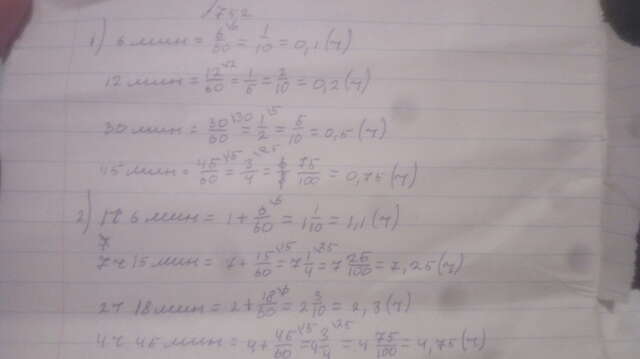 752
1) 6 мин = 6/60 = 1/10 = 0,1 (ч)
12 мин = 12/60 = 1/5 = 2/10 = 0,2 (ч)
30 мин = 30/60 = 1/2 = 5/10 = 0,5 (ч)
45 мин = 45/60 = 3/4 = 75/100 = 0,75 (ч)
2) 1ч 6 мин = 1 + 6/60 = 1 1/10 = 1,1 (ч)
7ч 15 мин = 7 + 15/60 = 7 1/4 = 7 25/100 = 7,25 (ч)
2ч 18 мин = 2 + 18/60 = 2 3/10 = 2,3 (ч)
4ч 45 мин = 4 + 45/60 = 4 3/4 = 4 75/100 = 4,75 (ч)